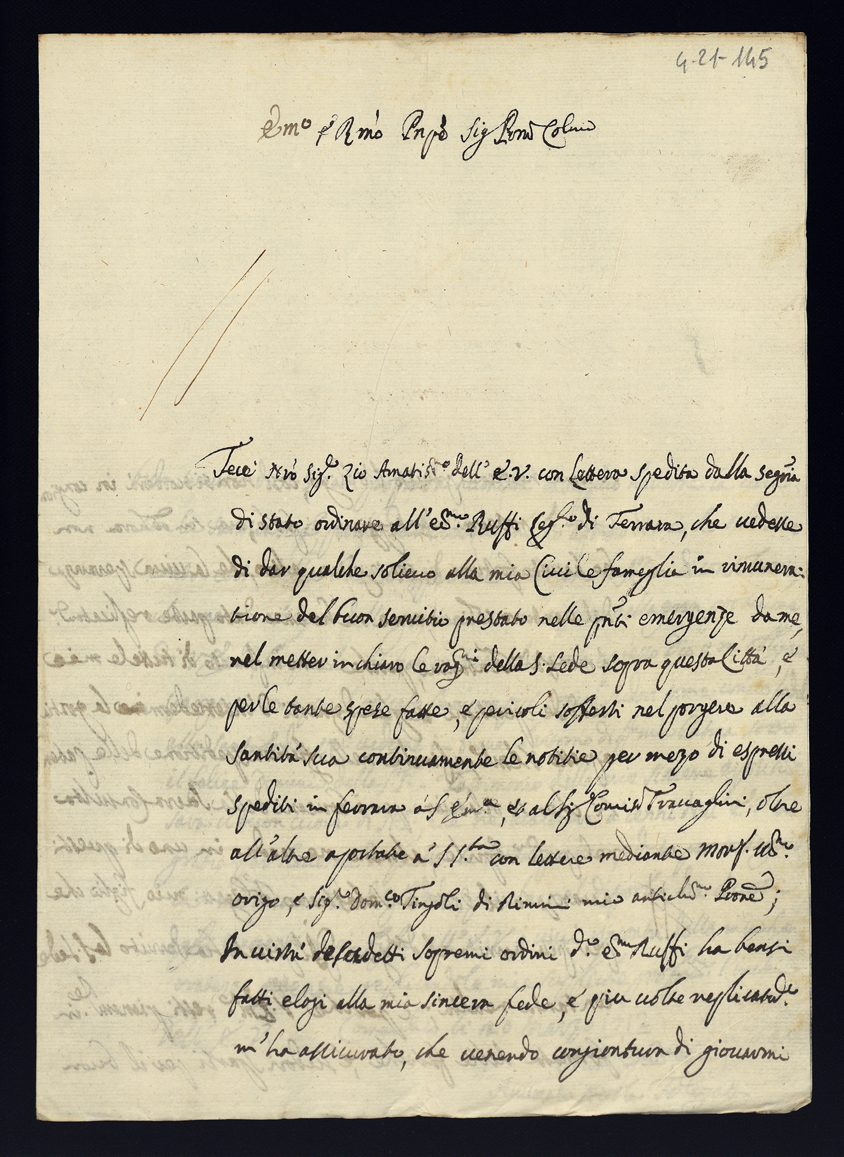 4-21-145
Em.o e Rmo Pnpe Sig Prone Colmo
Fece Nro Sig.r Zio Amatis.o dell' E.V. con Lettera spedita dalla Segria
di Stato ordinare all' Em.o Ruffi Leg.to di Ferrara, che vedesse
di dar qualche solievo alla mia Civile fameglia in rimunera:
tione del buon servitio prestato nelle pnti emergenze da me,
nel metter in chiaro le rag.ni della S. Sede sopra questa Città, e
per le tante spese fatte, e pericoli sofferti nel porgere alla
Santità sua continuamente le notitie per mezo di espressi
spediti in ferrara a S. Em.a, et al Sig. Comis.o Travaglini, oltre
all' altre aportate a S S.tà con lettere mediante Mons.
origo, e Sig.r Dom.co Tingoli di Rimini mio antichis.mo Prone;
In vistù de sudetti sopremi ordini d.o Em.o Ruffi ha bensi
fatti elogi alla mia sincera fede, e piu volte replicatam.te
m' ha assicurato, che venendo congiontura di giovarmi